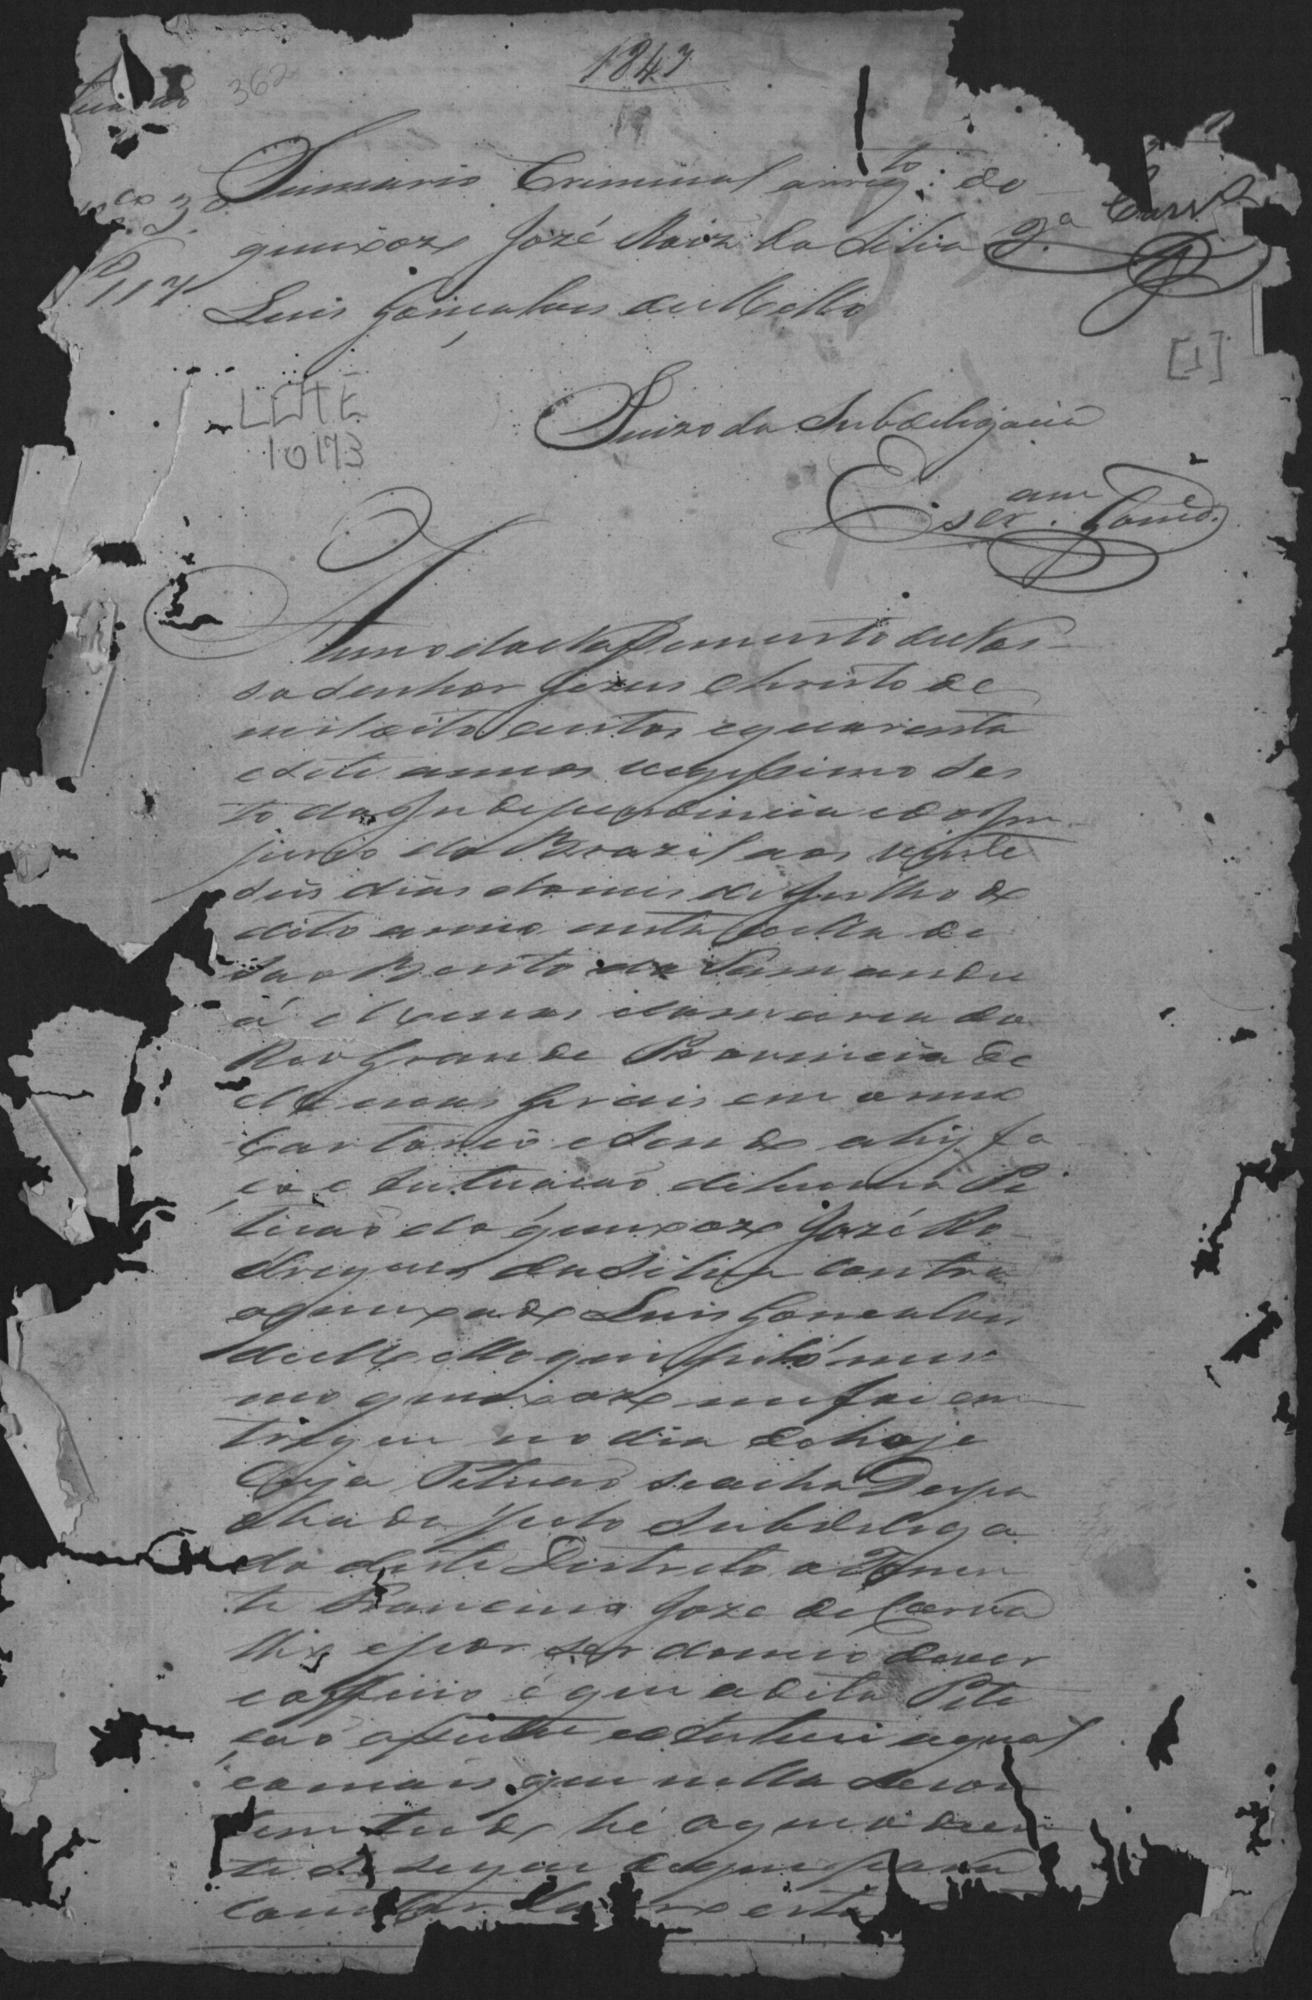 1847
362
Sumario Criminal a requerim.to do
queixozo José Roiz da Silva
Luis Gonçalves de Mello
[1]
LEITE
10173
Juizo da Subdeligacia
Escr.am Gomes
Anno do Nascimento de Nos-
so Senhor Jezus Christo de
mil oito centos e quarenta
e sete annos vegessimo ses
to da Independencia e do Im-
perio do Brazil aos vinte
seis dias do mes de Julho do
dito anno nesta Villa de
Sao Bento do Tamandu
á e Menas Comarca do
Rio Grande Provincia de
Menas Gerais em o meu
Cartorio e sendo ahi fa
ço e Autuação de huma Pe
tição do queixozo José Ro-
drigues da Silva contra
o queixado Luis Goncalves
de Mello que pelo mes
mo queixozo me foi en-
tregue no dia de hoje
Cuja Petição se acha Despa
chada pelo Subdelega
do deste Destrito o Tenen
te Francisco Joze de Carva
lho e por ser do meu dever
e officio é que a dita Peti
ção asseitei e Autuei a qual
e o mais que nella se con
tem tudo hé o que adien
te se segue de que para
constar faço este